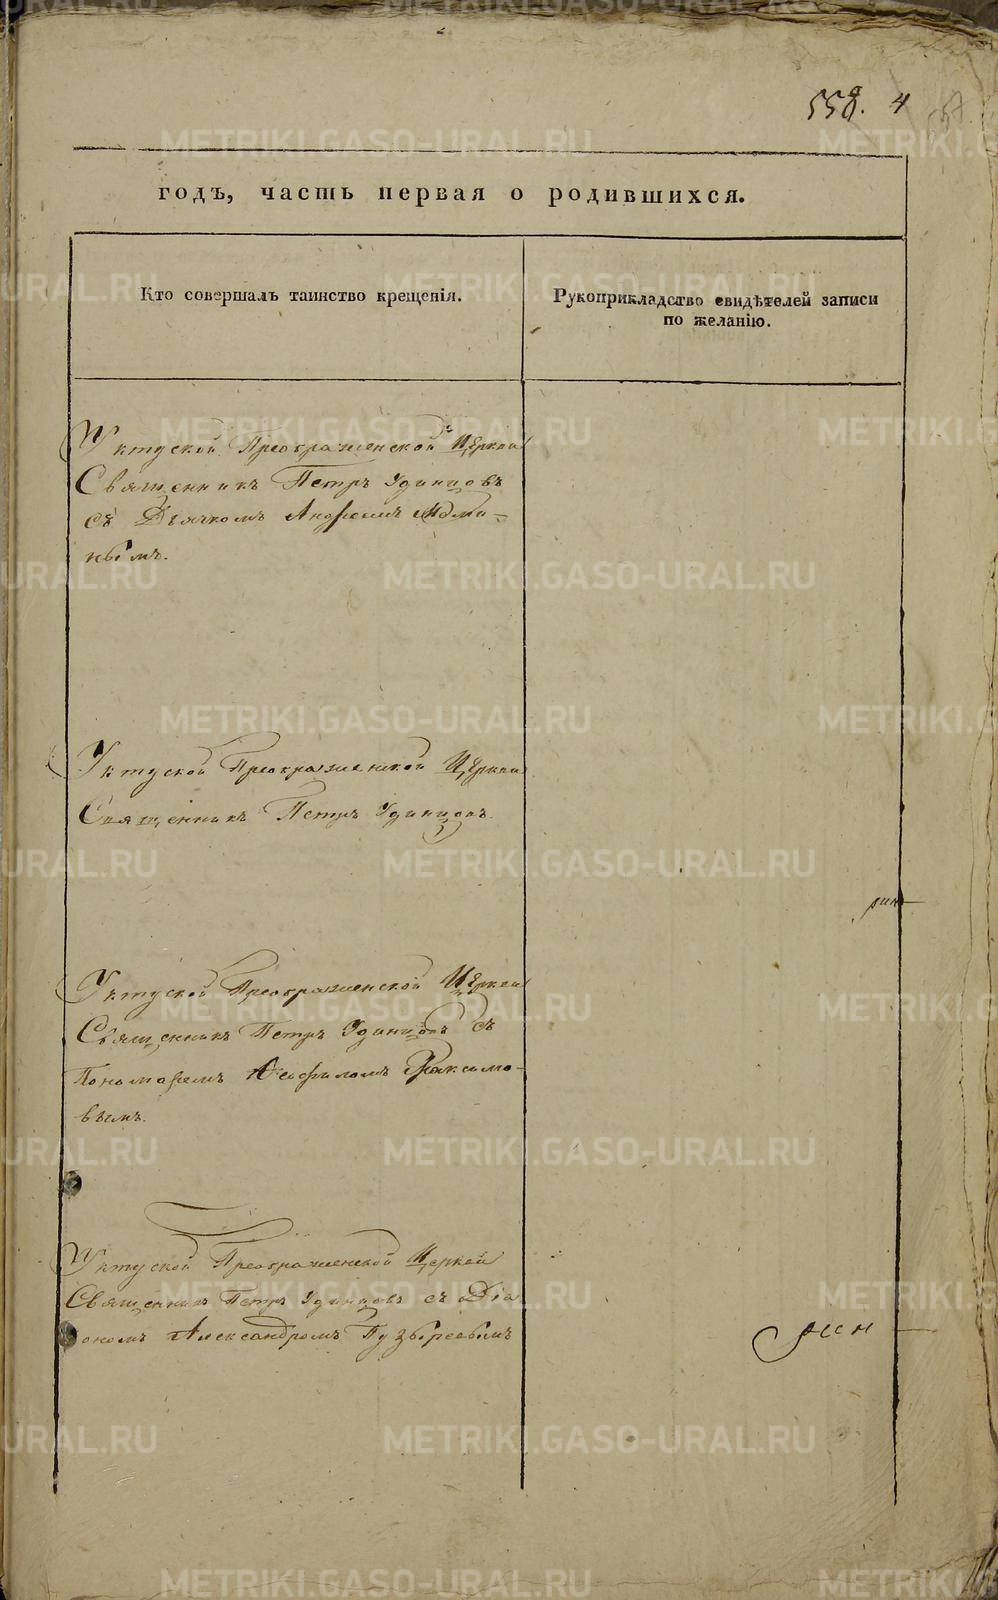 558. 4
годъ, часть первая о родившихся.
Кто совершалъ таинство крещенія.
Рукоприкладство свидѣтелей записи
по желанію.
Уктуской Преображенской Церкви
Священникъ Петръ Удинцовъ
съ Дьячкомъ Андреемъ
нымъ.
Уктуской Преображенской Церкви
Священникъ Петръ Удинцовъ.
Уктуской Преображенской Церкви
Священникъ Петръ Удинцовъ съ
Пономаремъ Ѳеофиломъ
вымъ.
Уктуской Преображенской Церкви
Священникъ Петръ Удинцовъ съ Діа
кономъ Александромъ Пузыревымъ
METRIKI.GASO-URAL.RU